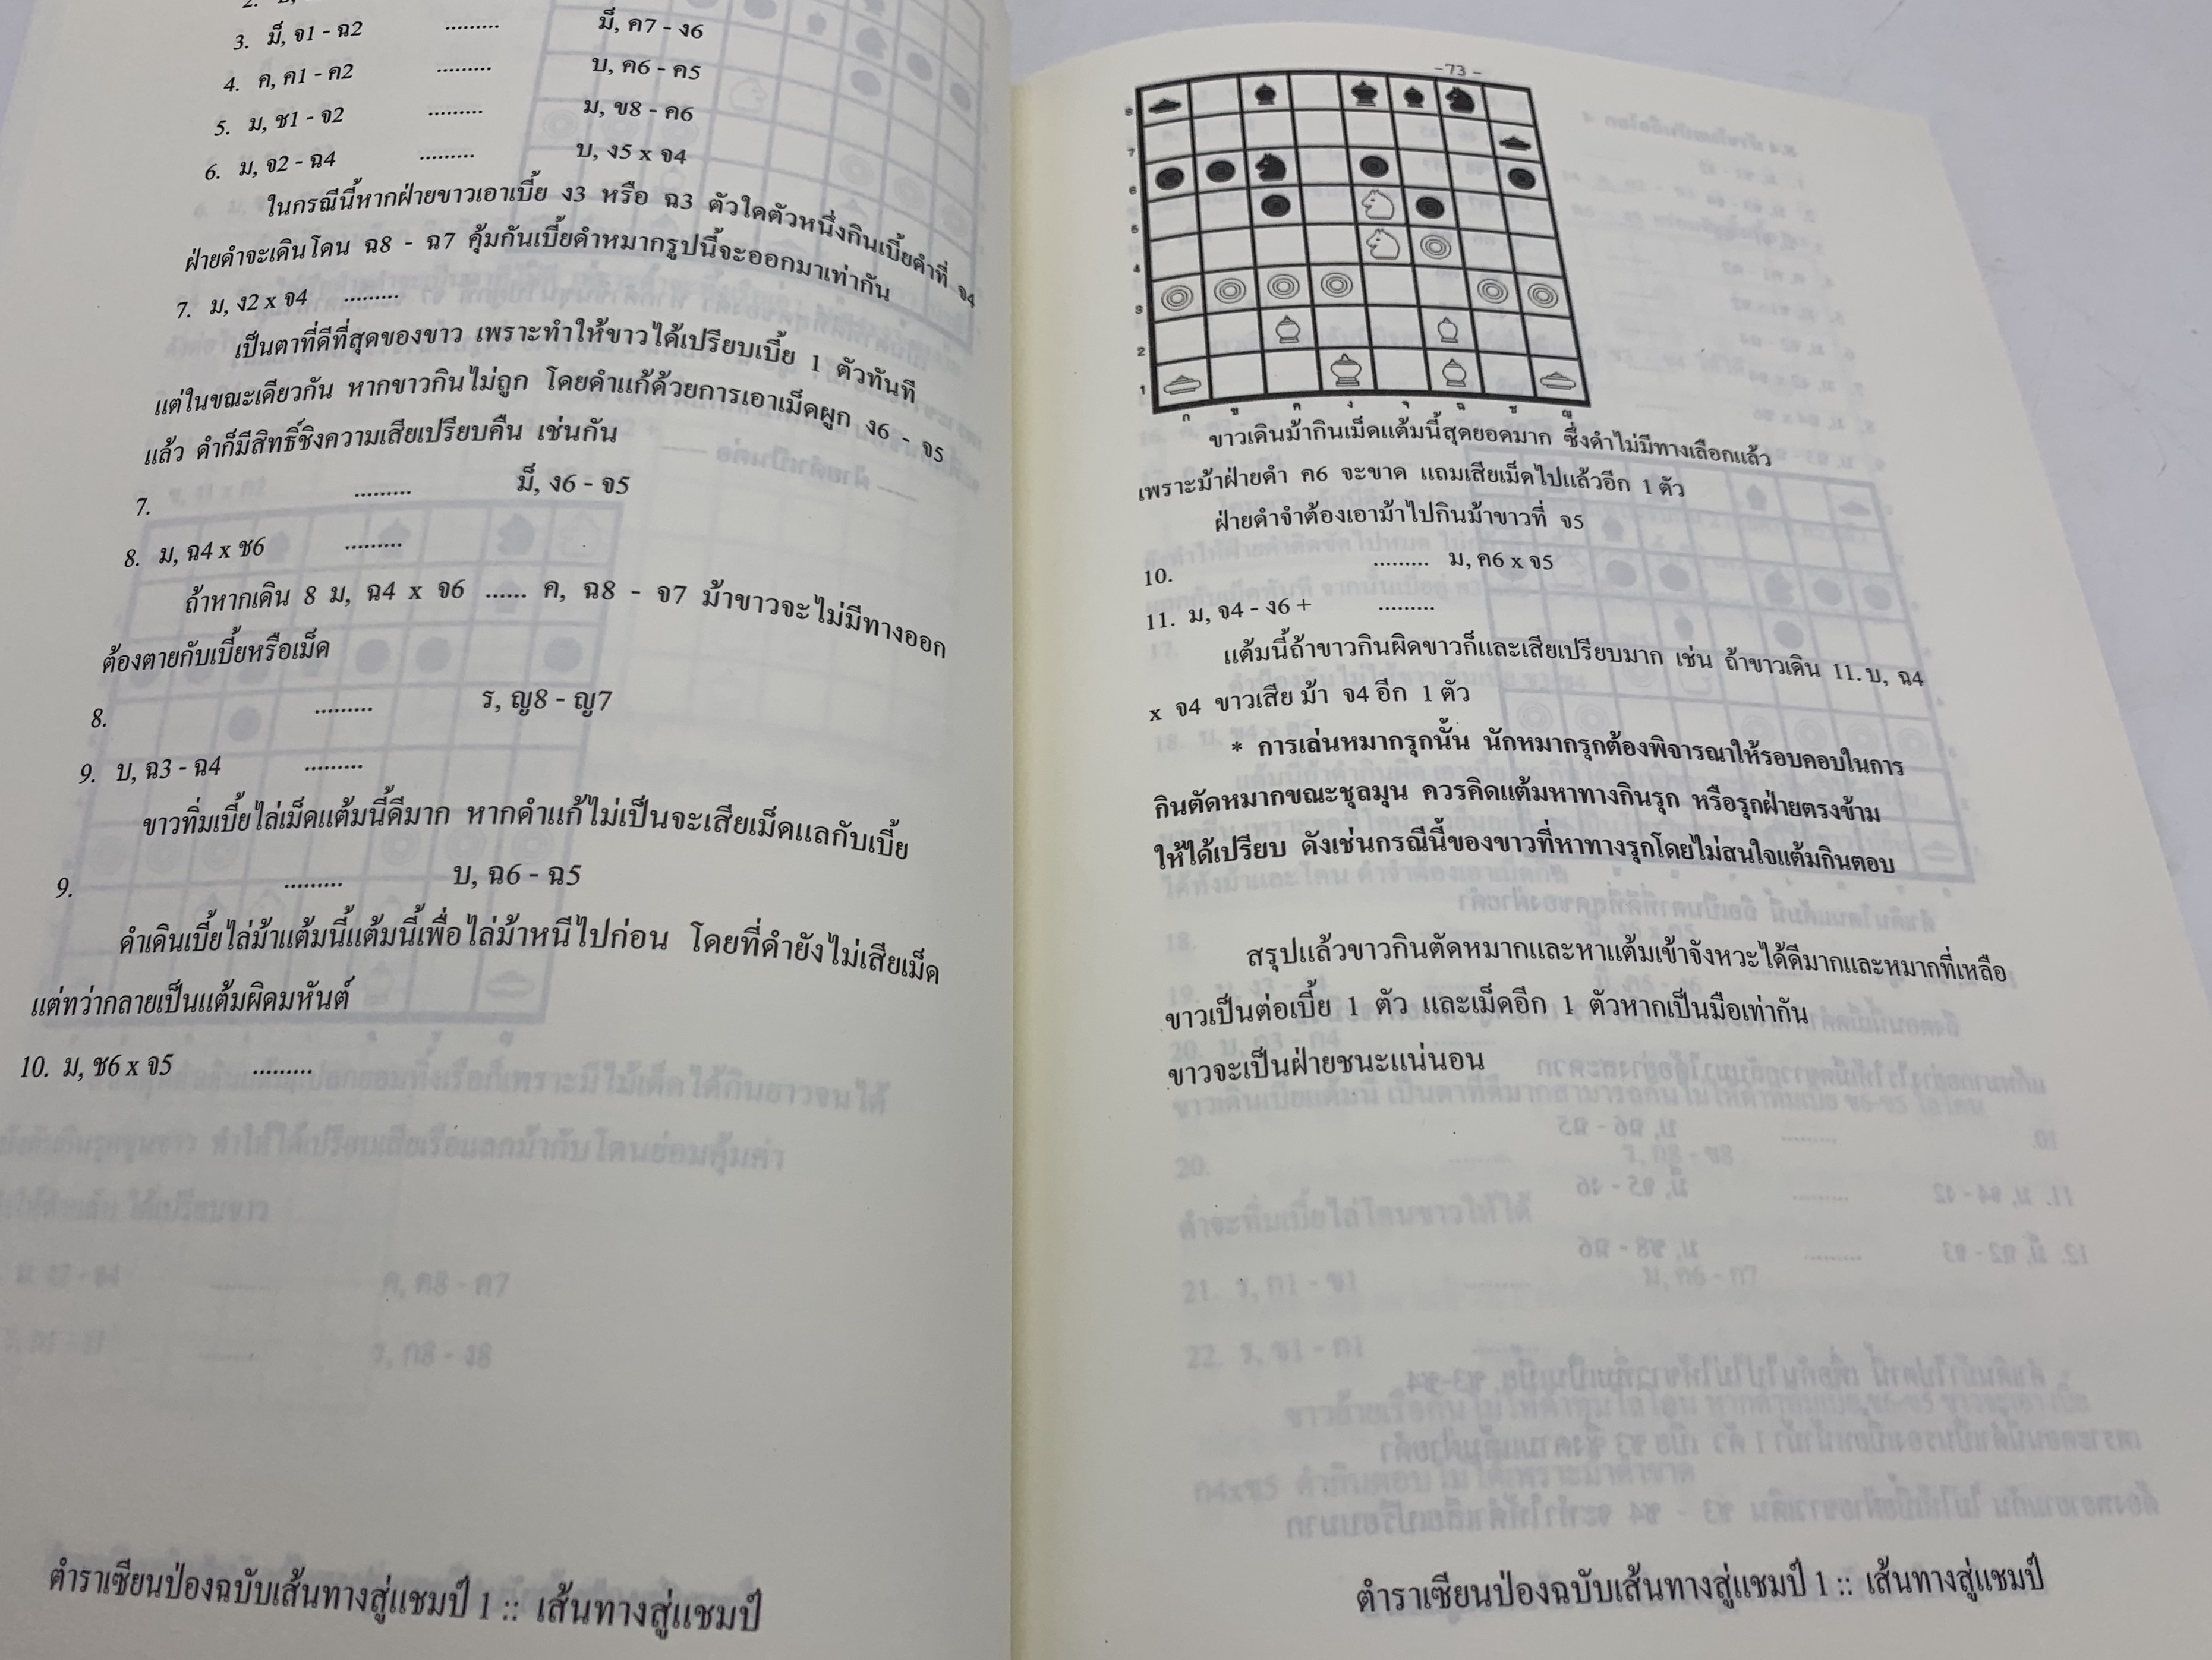 3. ม็, จ1 - ฉ2 ......... ม็, ค7 - ง6
4. ค, ค1 - ค2 ......... บ, ค6 - ค5
5. ม, ช1 - จ2 ......... ม, ข8 - ค6
6. ม, จ2 - ฉ4 ......... บ, ง5 x จ4
ในกรณีนี้หากฝ่ายขาวเอาเบี้ย ง3 หรือ ฉ3 ตัวใดตัวหนึ่งกินเบี้ยดำที่ จ4
ฝ่ายดำจะเดินโดน ฉ8 - ฉ7 คุ้มกันเบี้ยดำหมากรูปนี้จะออกมาเท่ากัน
7. ม, ง2 x จ4 .........
เป็นตาที่ดีที่สุดของขาว เพราะทำให้ขาวได้เปรียบเบี้ย 1 ตัวทันที
แต่ในขณะเดียวกัน หากขาวกินไม่ถูก โดยดำแก้ด้วยการเอาเม็ดผูก ง6 - จ5
แล้ว ดำก็มีสิทธิ์ชิงความเสียเปรียบคืน เช่นกัน
7. ......... ม็, ง6 - จ5
8. ม, ฉ4 x ช6 .........
ถ้าหากเดิน 8 ม, ฉ4 x จ6 ...... ค, ฉ8 - จ7 ม้าขาวจะไม่มีทางออก
ต้องตายกับเบี้ยหรือเม็ด
8. ......... ร, ญ8 - ญ7
9. บ, ฉ3 - ฉ4 .........
ขาวทิ่มเบี้ยไล่เม็ดแต้มนี้ดีมาก หากดำแก้ไม่เป็นจะเสียเม็ดแลกับเบี้ย
9. ......... บ, ฉ6 - ฉ5
ดำเดินเบี้ยไล่ม้าแต้มนี้แต้มนี้เพื่อไล่ม้าหนีไปก่อน โดยที่ดำยังไม่เสียเม็ด
แต่ทว่ากลายเป็นแต้มผิดมหันต์
10. ม, ช6 x จ5 .........
ตำราเซียนป่องฉบับเส้นทางสู่แชมป์ 1 :: เส้นทางสู่แชมป์
-73 -
8
7
6
5
4
3
2
1
ก ข ค ง จ ฉ ช ญ
ขาวเดินม้ากินเม็ดแต้มนี้สุดยอดมาก ซึ่งดำไม่มีทางเลือกแล้ว
เพราะม้าฝ่ายดำ ค6 จะขาด แถมเสียเม็ดไปแล้วอีก 1 ตัว
ฝ่ายดำจำต้องเอาม้าไปกินม้าขาวที่ จ5
10. ......... ม, ค6 x จ5
11. ม, จ4 - ง6 + .........
แต้มนี้ถ้าขาวกินผิดขาวก็และเสียเปรียบมาก เช่น ถ้าขาวเดิน 11. บ, ฉ4
x จ4 ขาวเสีย ม้า จ4 อีก 1 ตัว
* การเล่นหมากรุกนั้น นักหมากรุกต้องพิจารณาให้รอบคอบในการ
กินตัดหมากขณะชุลมุน ควรคิดแต้มหาทางกินรุก หรือรุกฝ่ายตรงข้าม
ให้ได้เปรียบ ดังเช่นกรณีนี้ของขาวที่หาทางรุกโดยไม่สนใจแต้มกินตอบ
สรุปแล้วขาวกินตัดหมากและหาแต้มเข้าจังหวะได้ดีมากและหมากที่เหลือ
ขาวเป็นต่อเบี้ย 1 ตัว และเม็ดอีก 1 ตัวหากเป็นมือเท่ากัน
ขาวจะเป็นฝ่ายชนะแน่นอน
ตำราเซียนป่องฉบับเส้นทางสู่แชมป์ 1 :: เส้นทางสู่แชมป์